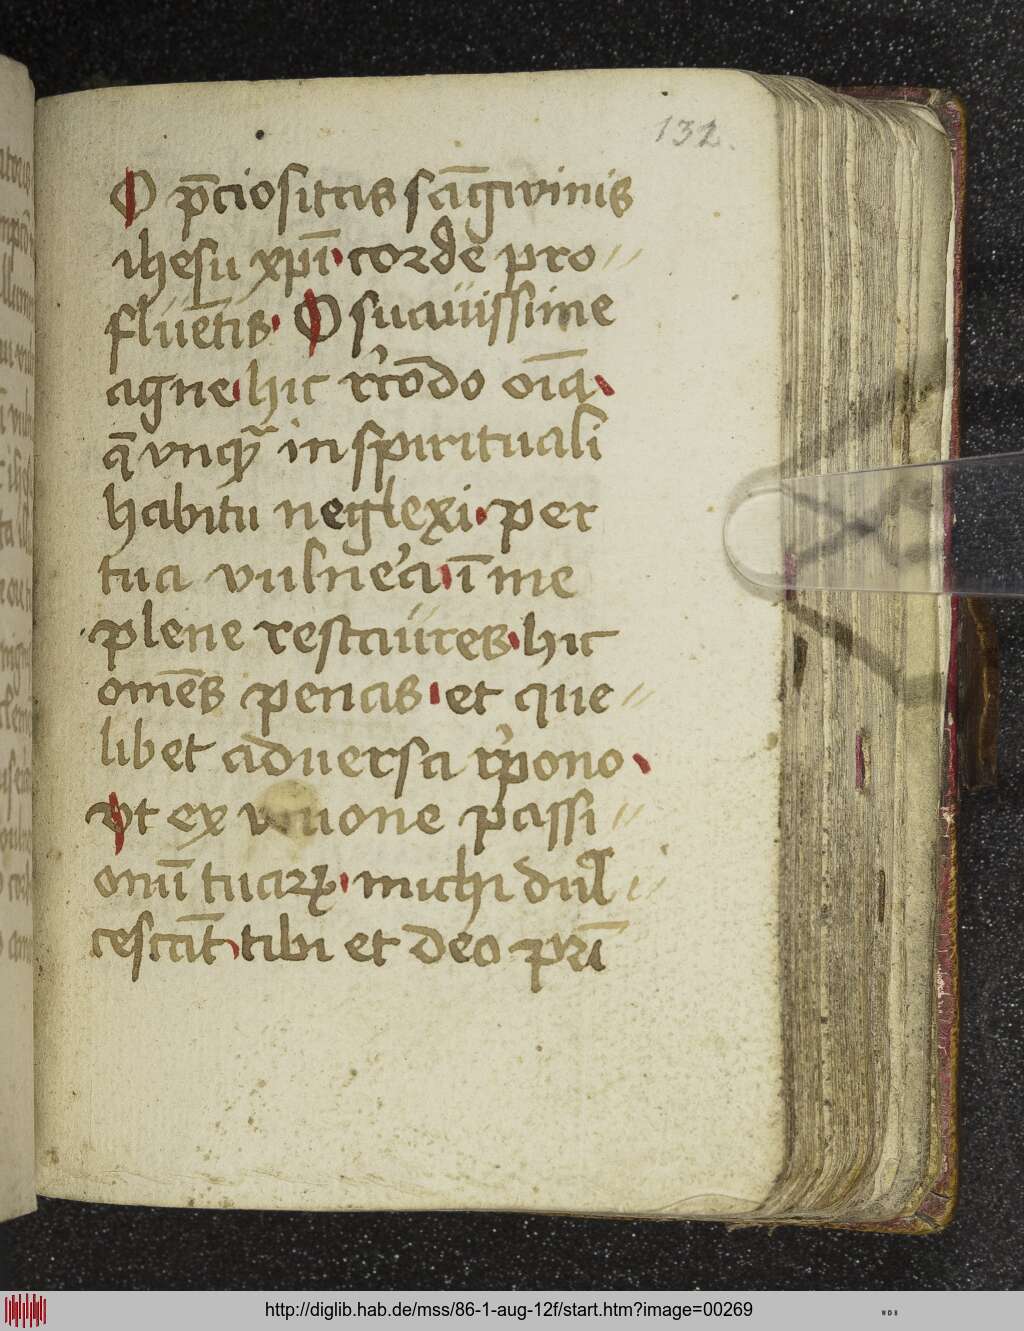 132.
O p̄ciositas sāgwinis
ihesu xp̄i corde pro〃
flūetis O suauissime
agne hic rͬcōdo oı̄a
q̄ vnqꝫ in spirituali
habitu neglexi per
tua vulneͬa ī me
plene restaures hic
omēs penas et que〃
libet aduersa rͬpono
Vt ex vnione passi〃
onuı̄ tuaꝝ michi dul〃
cescāt tibi et deo pr̄i
http://diglib.hab.de/mss/86-1-aug-12f/start.htm?image=00269